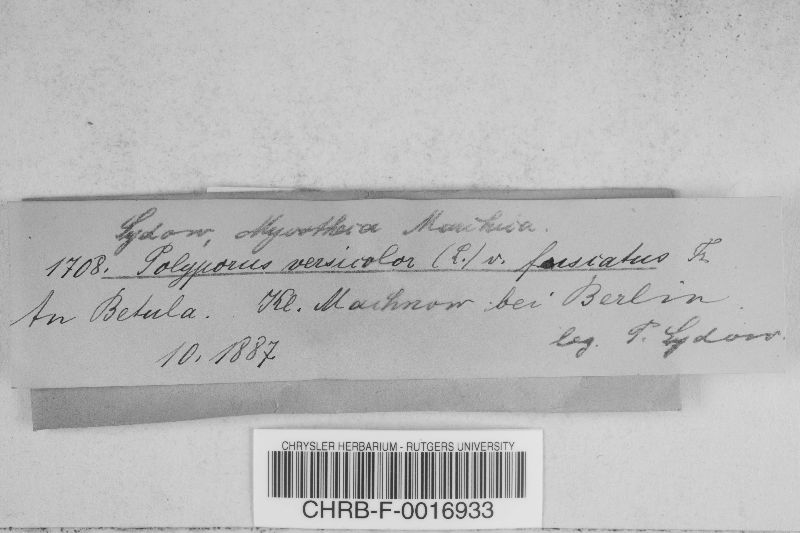 Sydow, Mycotheca Marchica.
1708. Polyporus versicolor (L.) v. fusciatus Fr.
An Betula. Kl. Machnow bei Berlin.
10. 1887 leg. P. Sydow.
CHRYSLER HERBARIUM - RUTGERS UNIVERSITY
CHRB-F-0016933